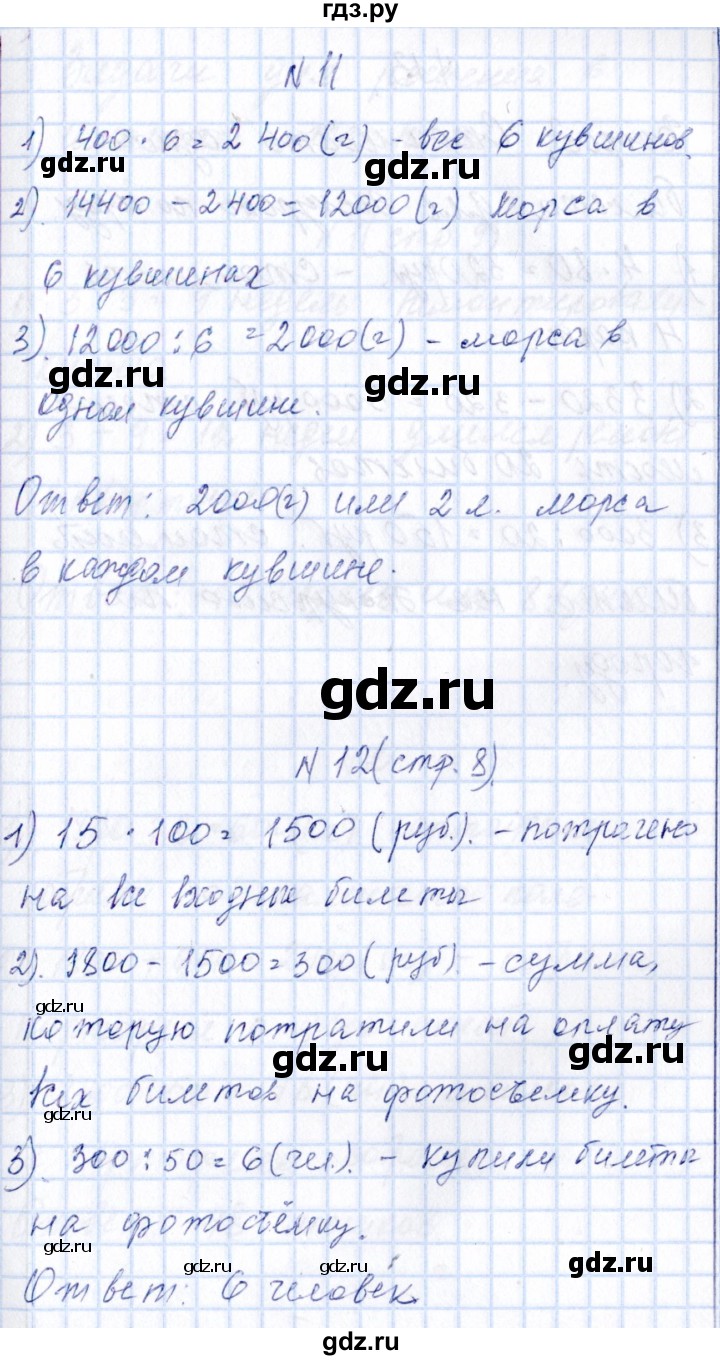 гдз.ру
N 11
1) 400 · 6 = 2 400 (г) - все 6 кувшинов
gdz.ru gdz.ru
2). 14400 - 2400 = 12000 (г) морса в
6 кувшинах
3). 12000 : 6 = 2000 (г) - морса в
gdz.ru gdz.ru
одном кувшине.
Ответ: 2000 (г) или 2 л. морса
в каждом кувшине.
gdz.ru
N 12 (стр. 8)
1) 15 · 100 = 1500 (руб.). - потрачено
на все входные билеты
2). 1800 - 1500 = 300 (руб) - сумма,
gdz.ru
которую потратили на оплату
gdz.ru gdz.ru
всех билетов на фотосъемку.
3). 300 : 50 = 6 (чел.). - купили билеты
на фотосъёмку.
gdz.ru gdz.ru gdz.ru
Ответ: 6 человек.
gdz.ru